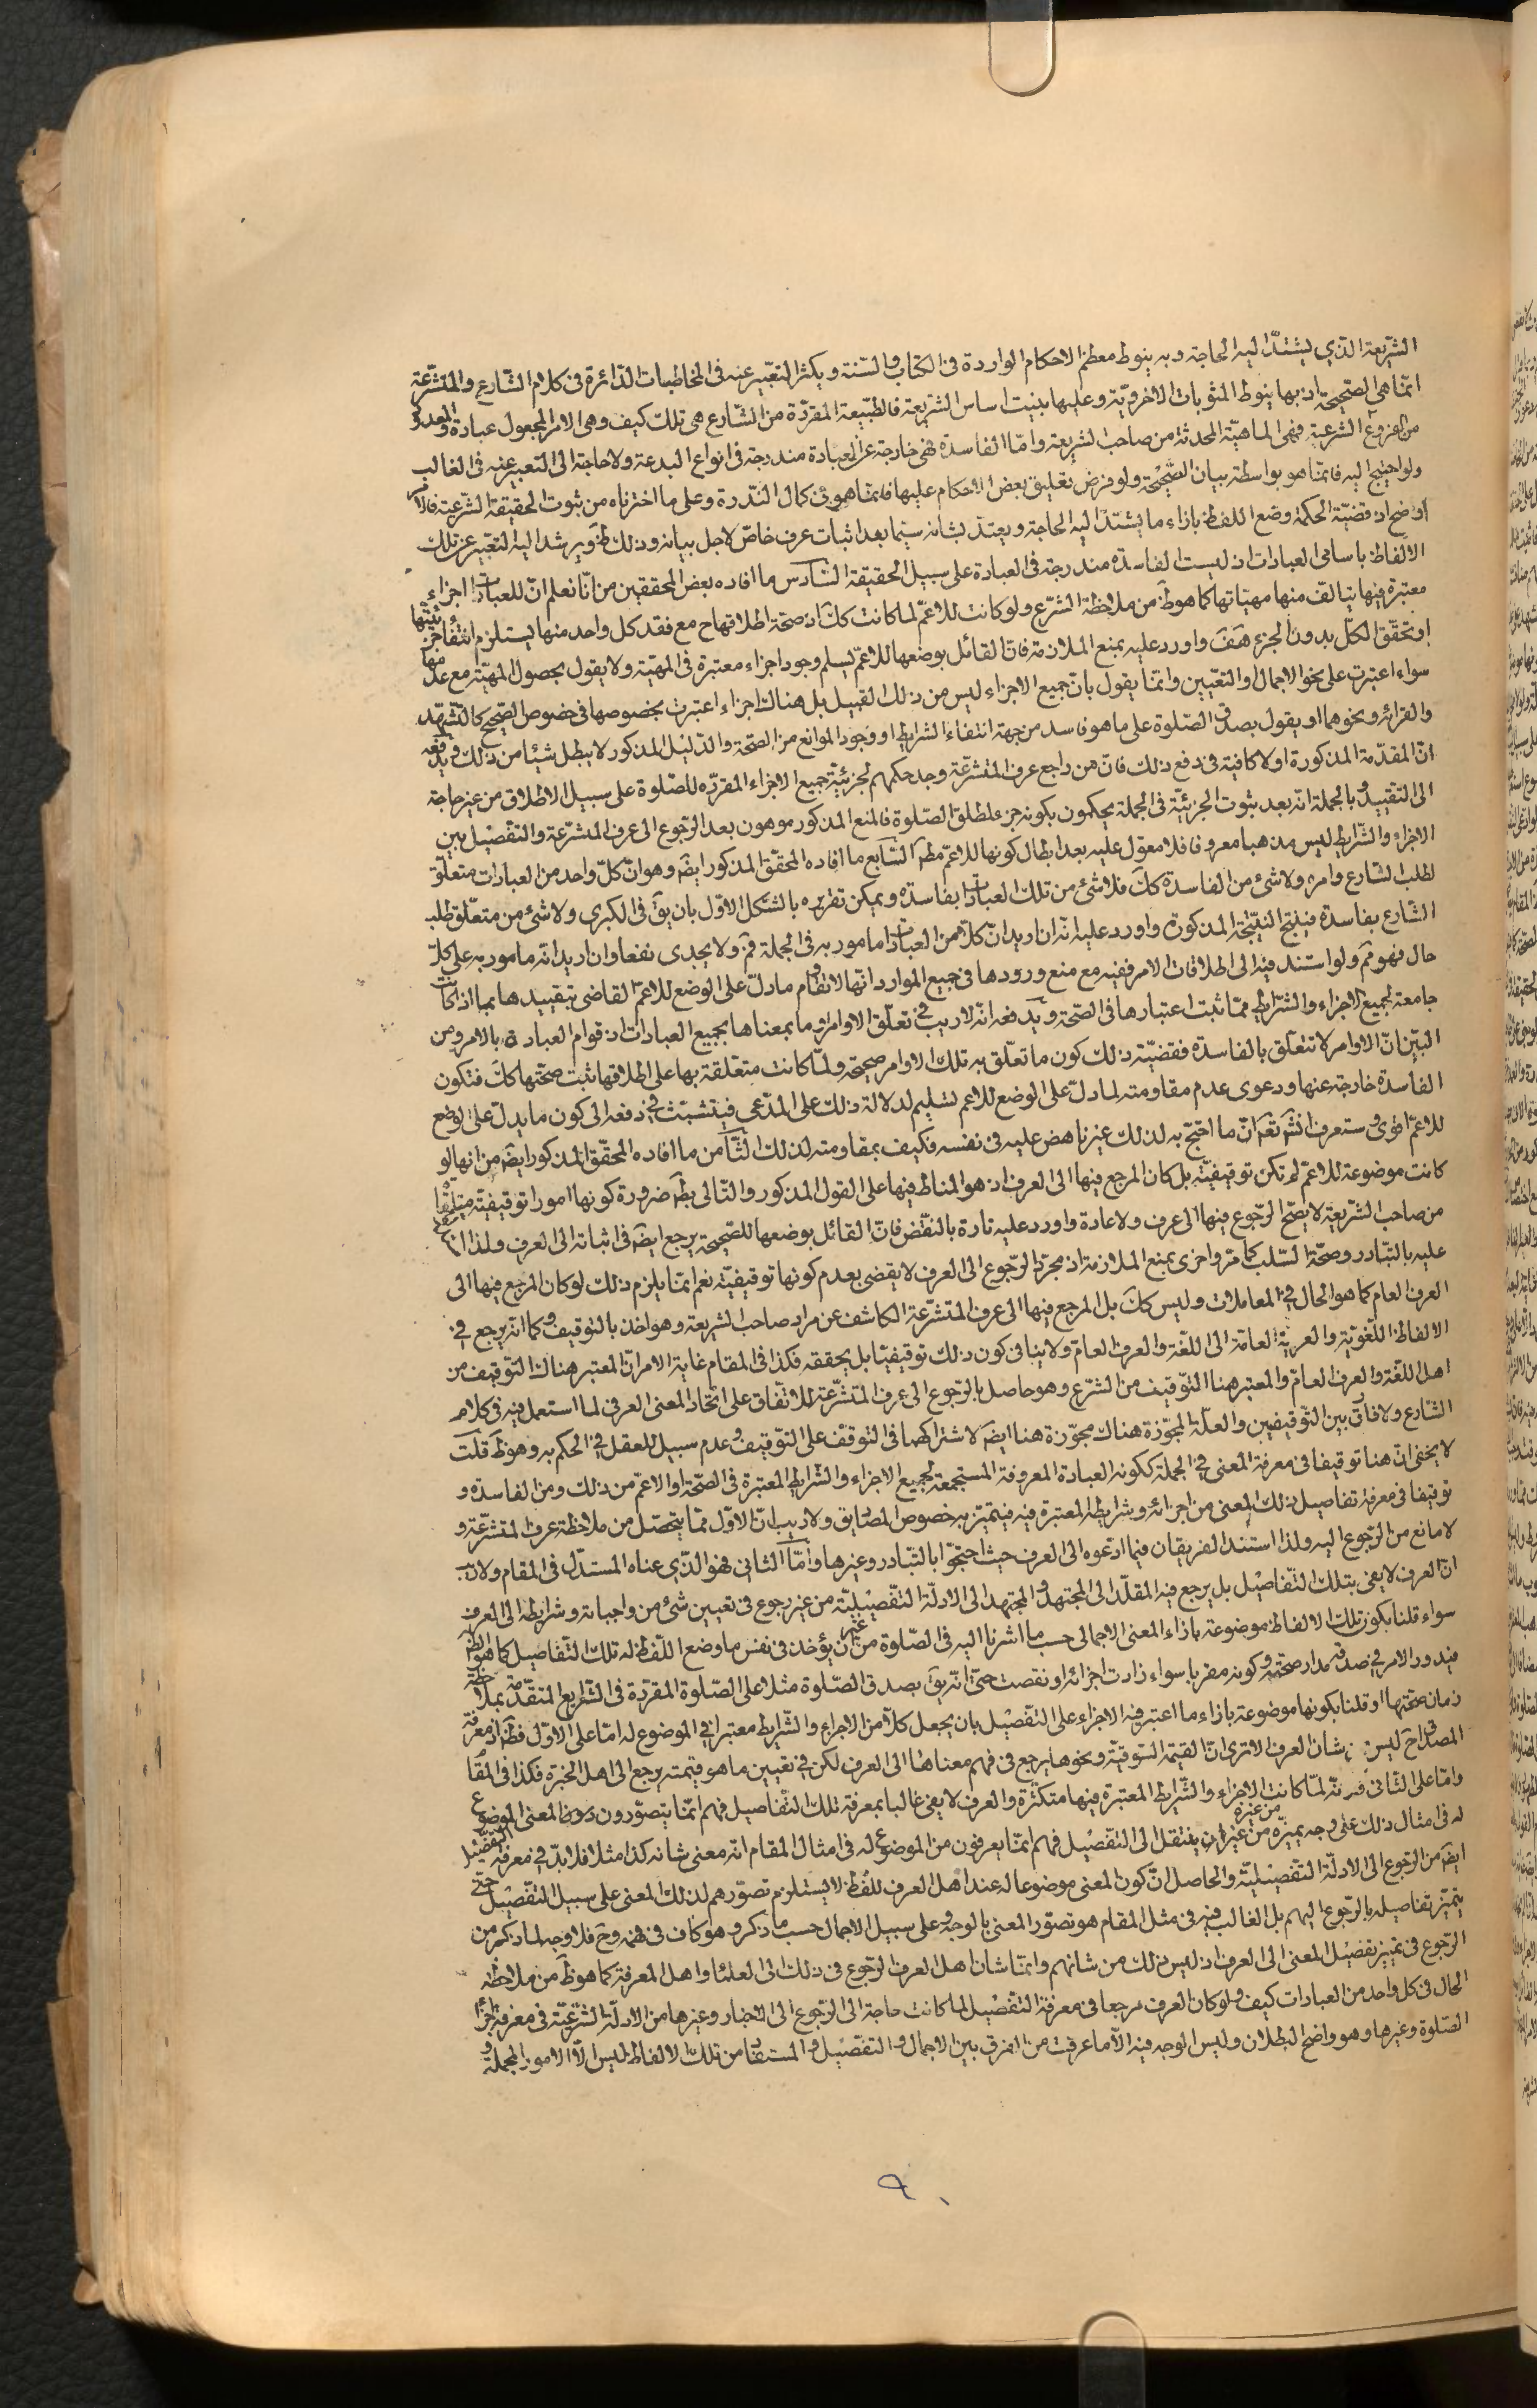 الشريعة الذي يشتد اليه الحاجة و به ينوط معظم الاحكام الواردة في الكتاب والسنة و يكثر التعبير عنه في المخاطبات الدائرة في كلام الشارع والمتشرعة
انما هي الصحيحة اذ بها ينوط المثوبات الاخروية و عليها بنيت اساس الشريعة فالطبيعة المقررة من الشارع هي تلك كيف وهي الامر المجعول عبادة والمعدود
من فروع الشرعية فهي الماهية المحدثة من صاحب الشريعة واما الفاسدة فهي خارجة عن العبادة مندرجة في انواع البدعة ولا حاجة الى التعبير عنه في الغالب
ولو احتيج اليه فانما هو بواسطة بيان الصحيحة ولو فرض تعليق بعض الاحكام عليها فانما هو في كمال الندرة وعلى ما اخترناه من ثبوت الحقيقة الشرعية فالامر
اوضح اذ قضية الحكمة وضع اللفظ بازاء ما يشتد اليه الحاجة و يعتد بشانه سيما بعد اثبات عرف خاص لاجل بيانه وذلك ظ ويرشد اليه التعبير عن تلك
الالفاظ باسامي العبادات اذ ليست الفاسدة مندرجة في العبادة على سبيل الحقيقة السادس ما افاده بعض المحققين من انا نعلم ان للعبادات اجزاء
معتبرة فيها يتالف منها مهياتها كما هو ظ من ملاحظة الشرع ولو كانت للاعم لما كانت كك اذ صحة اطلاقها ح مع فقد كل واحد منها يستلزم انتفاء جزئيتها
او تحقق الكل بدون الجزء هف واورد عليه بمنع الملازمة فان القائل بوضعها للاعم يسلم وجود اجزاء معتبرة في المهية ولا يقول بحصول المهية مع عدمها
سواء اعتبرت على نحو الاجمال والتعيين وانما يقول بان جميع الاجزاء ليس من ذلك القبيل بل هناك اجزاء اعتبرت بخصوصها في خصوص الصحيح كالتشهد
والقرائة ونحوهما او يقول بصدق الصلوة على ما هو فاسد من جهة انتفاء الشرايط او وجود الموانع من الصحة والدليل المذكور لا يبطل شيئا من ذلك ويدفعه
ان المقدمة المذكورة اولا كافية في دفع ذلك فان من راجع عرف المتشرعة وجد حكمهم لجزئية جميع الاجزاء المقررة للصلوة على سبيل الاطلاق من غير حاجة
الى التقييد وبالجملة انه بعد ثبوت الجزئية في الجملة يحكمون بكونه جزء لمطلق الصلوة فالمنع المذكور موهون بعد الرجوع الى عرف المتشرعة والتفصيل بين
الاجزاء والشرايط ليس مذهبا معروفا فلا معول عليه بعد ابطال كونها للاعم مطم السابع ما افاده المحقق المذكور ايضم وهو ان كل واحد من العبادات متعلق
لطلب الشارع وامره ولا شئ من الفاسدة كك فلا شئ من تلك العبادات بفاسدة و يمكن تقريره بالشكل الاول بان يق في الكبرى ولا شئ من متعلق طلب
الشارع بفاسدة فينتج النتيجة المذكورة واورد عليه انه ان اريد ان كلا من العبادات مامور به في الجملة فم ولا يجدى نفعا وان اريد انه مامور به على كل
حال فهو مم ولو استند فيه الى اطلاقات الامر ففيه مع منع ورودها في جميع الموارد انها لا تقاوم ما دل على الوضع للاعم القاضي بتقييدها بما اذا كانت
جامعة لجميع الاجزاء والشرايط مما ثبت اعتبارها في الصحة ويدفعه انه لا ريب في تعلق الاوامر او ما بمعناها بجميع العبادات اذ قوام العبادة بالامر ومن
البين ان الاوامر لا تتعلق بالفاسدة فقضية ذلك كون ما تعلق به تلك الاوامر صحيحة ولما كانت متعلقة بها على اطلاقها ثبت صحتها كك فتكون
الفاسدة خارجة عنها ودعوى عدم مقاومته لما دل على الوضع للاعم تسليم لدلالة ذلك على المدعى فيتشبث في دفعه الى كون ما يدل على الوضع
للاعم اقوى وستعرف انش تعم ان ما احتج به لذلك غير ناهض عليه في نفسه فكيف بمقاومته لذلك الثامن ما افاده المحقق المذكور ايضم من انها لو
كانت موضوعة للاعم لم تكن توقيفية بل كان المرجع فيها الى العرف اذ هو المناط فيها على القول المذكور والتالي بط ضرورة كونها امورا توقيفية متلقاة
من صاحب الشريعة لا يصح الرجوع فيها الى عرف ولا عادة واورد عليه تارة بالنقض فان القائل بوضعها للصحيحة يرجع ايضم في اثباته الى العرف ولذا
عليه بالتبادر وصحة السلب كما مر واخرى بمنع الملازمة اذ مجرد الرجوع الى العرف لا يقضى بعدم كونها توقيفية نعم انما يلزم ذلك لو كان المرجع فيها الى
العرف العام كما هو الحال في المعاملات وليس كك بل المرجع فيها الى عرف المتشرعة الكاشف عن مراد صاحب الشريعة وهو اخذ بالتوقيف و كما انه يرجع في
الالفاظ اللغوية والعربية العامة الى اللغة والعرف العام ولا ينافى كون ذلك توقيفيا بل يحققه فكذا في المقام غاية الامر ان المعتبر هناك التوقيف من
اهل اللغة والعرف العام والمعتبر هنا التوقيف من الشرع وهو حاصل بالرجوع الى عرف المتشرعة للاتفاق على اتحاد المعنى العرفي لما استعمل فيه في كلام
الشارع ولا فارق بين التوقيفين والعلة المجوزة هناك مجوزة هنا ايضم لاشتراكهما في التوقف على التوقيف وعدم سبيل للعقل في الحكم به وهو ظ قلت
لا يخفى ان هنا توقيفا في معرفة المعنى في الجملة ككونه العبادة المعروفة المستجمعة لجميع الاجزاء والشرايط المعتبرة في الصحة او الاعم من ذلك ومن الفاسدة و
توقيفا في معرفة تفاصيل ذلك المعنى من اجزائه وشرايطه المعتبرة فيه فيتميز به خصوص المصاديق ولا ريب ان الاول مما يتحصل من ملاحظة عرف المتشرعة و
لا مانع من الرجوع اليه ولذا استند الفريقان فيما ادعوه الى العرف حيث احتجوا بالتبادر وغيرها واما الثاني فهو الذي عناه المستدل في المقام ولا ريب
ان العرف لا يفى بتلك التفاصيل بل يرجع فيه المقلد الى المجتهد والمجتهد الى الادلة التفصيلية من غير رجوع في تعيين شئ من واجباته وشرايطه الى العرف
سواء قلنا بكون تلك الالفاظ موضوعة بازاء المعنى الاجمالي حسب ما اشرنا اليه في الصلوة من غير ان يؤخذ في نفس ما وضع اللفظ له تلك التفاصيل كما هو الظ
فيدور الامر في صدقه مدار صحته وكونه مقربا سواء زادت اجزائه او نقصت حتى انه يق بصدق الصلوة مثلا على الصلوة المقررة في الشرايع المتقدمة بملاحظة
زمان صحتها او قلنا بكونها موضوعة بازاء ما اعتبر فيه الاجزاء على التفصيل بان يجعل كلا من الاجزاء والشرايط معتبرا في الموضوع له اما على الاول فظ اذ معرفة
المصداق ح ليس شان العرف الا ترى ان القيمة السوقية ونحوها يرجع في فهم معناها الى العرف لكن في تعيين ما هو قيمته يرجع الى اهل الخبرة فكذا في المقام
واما على الثاني لما كانت الاجزاء والشرايط المعتبرة فيها متكثرة والعرف لا يفى غالبا بمعرفة تلك التفاصيل فهم انما يتصورون المعنى الموضوع
له في امثال ذلك على وجه يميزه من غيره من غير ان ينتقل الى التفصيل فهم انما يعرفون من الموضوع له في امثال المقام انه معنى شانه كذا مثلا فلا بد في معرفة التفصيل
ايضم من الرجوع الى الادلة التفصيلية والحاصل ان كون المعنى موضوعا له عند اهل العرف للفظ لا يستلزم تصورهم لذلك المعنى على سبيل التفصيل حتى
يتميز تفاصيله بالرجوع اليهم بل الغالب فيه في مثل المقام هو تصور المعنى بالوجه وعلى سبيل الاجمال حسب ما ذكر وهو كاف في فهمه وح فلا وجه لما ذكر من
الرجوع في تمييز تفصيل المعنى الى العرف اذ ليس ذلك من شانهم وانما شان اهل العرف الرجوع في ذلك الى العلماء واهل المعرفة كما هو ظ من ملاحظة
الحال في كل واحد من العبادات كيف ولو كان العرف مرجعا في معرفة التفصيل لما كانت حاجة الى الرجوع الى الاخبار وغيرها من الادلة الشرعية في معرفة اجزاء
الصلوة وغيرها وهو واضح البطلان وليس الوجه فيه الا ما عرفت من الفرق بين الاجمال والتفصيل والمستفاد من تلك الالفاظ ليس الا الامور المجملة و
٩٠